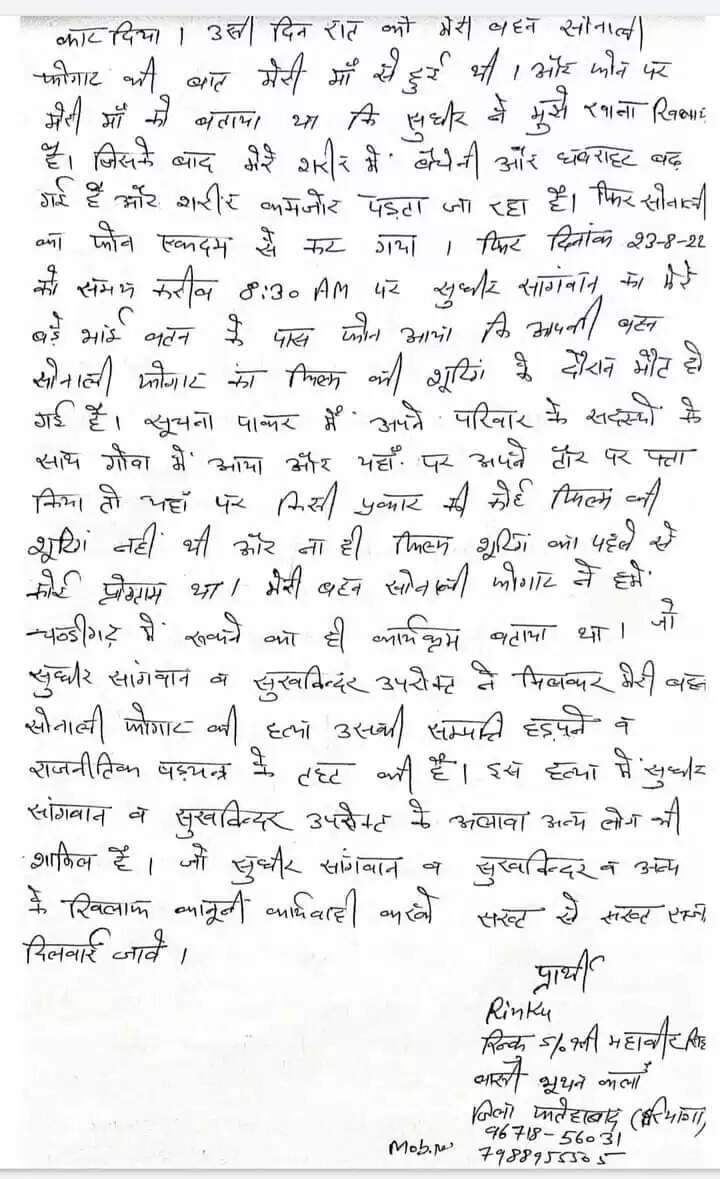 काट दिया । उसी दिन रात को मेरी बहन सोनाली
फोगाट की बात मेरी माँ से हुई थी । और फोन पर
मेरी माँ को बताया था कि सुधीर ने मुझे खाना खिलाया
है। जिसके बाद मेरे शरीर में बेचैनी और घबराहट बढ़
गई है और शरीर कमजोर पड़ता जा रहा है। फिर सोनाली
का फोन एकदम से कट गया । फिर दिनांक 23-8-22
को समय करीब 8:30 AM पर सुधीर सांगवान का मेरे
बड़े भाई वतन के पास फोन आया कि आपकी बहन
सोनाली फोगाट का फिल्म की शूटिंग के दौरान मौत हो
गई है। सूचना पाकर मैं अपने परिवार के सदस्यों के
साथ गोवा में आया और यहाँ पर अपने तौर पर पता
किया तो यहाँ पर किसी प्रकार की कोई फिल्म की
शूटिंग नहीं थी और ना ही फिल्म शूटिंग का पहले से
कोई प्रोग्राम था । मेरी बहन सोनाली फोगाट ने हमें
चण्डीगढ़ में रूकने का ही कार्यक्रम बताया था । जो
सुधीर सांगवान व सुखविन्दर उपरोक्त ने मिलकर मेरी बहन
सोनाली फोगाट की हत्या उसकी सम्पत्ति हड़पने व
राजनीतिक षड़यन्त्र के तहत की है। इस हत्या में सुधीर
सांगवान व सुखविन्दर उपरोक्त के अलावा अन्य लोग भी
शामिल है । जो सुधीर सांगवान व सुखविन्दर व अन्य
के खिलाफ कानूनी कार्यवाही करके सख्त से सख्त सजा
दिलवाई जावे ।
प्रार्थी
Rinku
रिन्कू S/o श्री महावीर सिंह
वासी भूथन कलाँ
जिला फतेहाबाद (हरियाणा)
96718-56031
Mob.no 7988955505